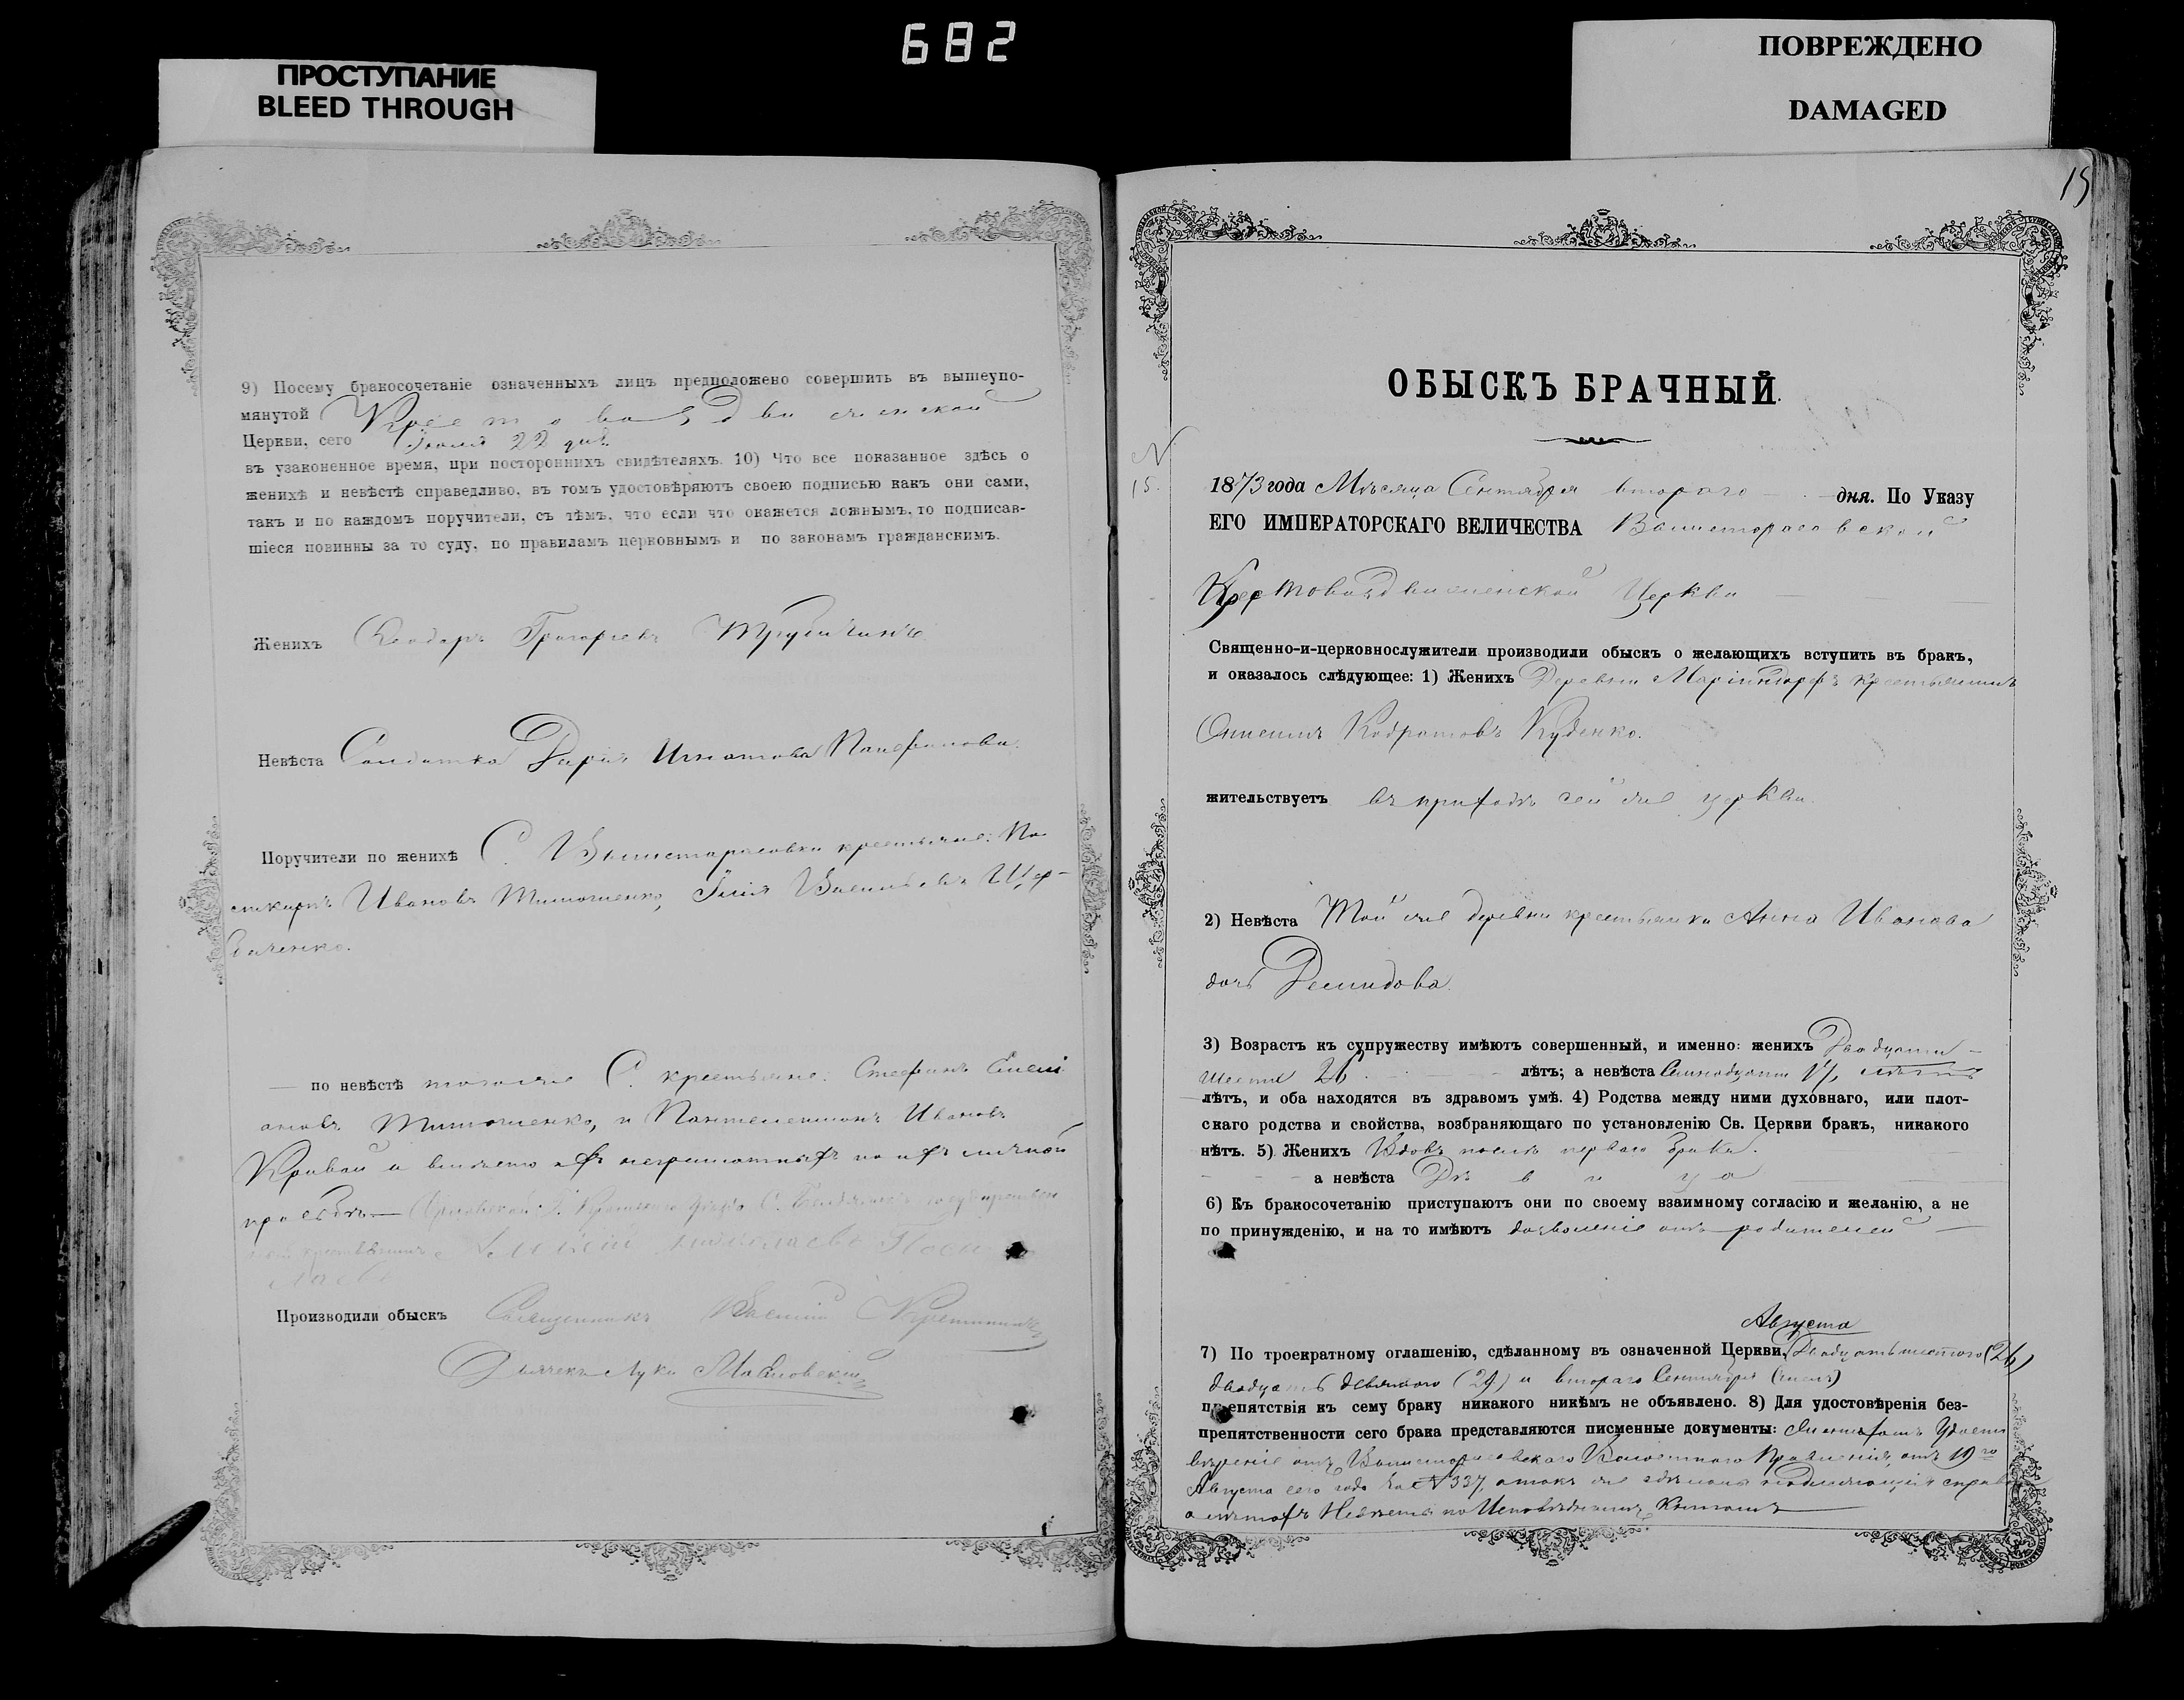 682
ПРОСТУПАНИЕ
BLEED THROUGH
ПОВРЕЖДЕНО
DAMAGED
9) Посему бракосочетаніе означенныхъ лицъ предположено совершить въ вышеупо-
мянутой Крестовоздвиженской
Церкви, сего Іюля 22 дня
въ узаконенное время, при постороннихъ свидѣтеляхъ. 10) Что все показанное здѣсь о
женихѣ и невѣстѣ справедливо, въ томъ удостовѣряютъ своею подписью какъ они сами,
такъ и по каждомъ поручители, съ тѣмъ, что если что окажется ложнымъ, то подписав-
шіеся повинны за то суду, по правиламъ церковнымъ и по законамъ гражданскимъ.
Женихъ Ѳеодоръ Григорьевъ
Невѣста Солдатка Дарія Игнатова
Поручители по женихѣ С. Вышетарасовки крестьяне:
Ивановъ Тимошенко, Илія Васильевъ
по невѣстѣ тогоже С. крестьяне: Стефанъ
Тимошенко, и Пантелеимонъ Ивановъ
Кривой а вмѣсто ихъ неграмотныхъ по ихъ личной
прозьбѣ
Производили обыскъ Священникъ Василій
Дьячекъ Лука
15
ОБЫСКЪ БРАЧНЫЙ.
N
15.
1873 года Мѣсяца Сентября втораго дня. По Указу
ЕГО ИМПЕРАТОРСКАГО ВЕЛИЧЕСТВА Вышетарасовской
Крестовоздвиженской Церкви
Священно-и-церковнослужители производили обыскъ о желающихъ вступить въ бракъ,
и оказалось слѣдующее: 1) Женихъ Деревни Маріиндорфъ крестьянинъ
Кодратовъ Куденко.
жительствуетъ въ приходѣ сей же церкви.
2) Невѣста Той же деревни крестьянка Анна Иванова
дочь Демидова.
3) Возрастъ къ супружеству имѣютъ совершенный, и именно: женихъ Двадцати
шести 26 лѣтъ; а невѣста Семнадцати 17,
лѣтъ, и оба находятся въ здравомъ умѣ. 4) Родства между ними духовнаго, или плот-
скаго родства и свойства, возбраняющаго по установленію Св. Церкви бракъ, никакого
нѣтъ. 5) Женихъ Вдовъ послѣ перваго брака.
а невѣста Дѣвица
6) Къ бракосочетанію приступаютъ они по своему взаимному согласію и желанію, а не
по принужденію, и на то имѣютъ дозволеніе отъ родителей
Августа
7) По троекратному оглашенію, сдѣланному въ означенной Церкви, Двадцатьшестого (26)
двадцать девятого (29) и втораго Сентября
препятствія къ сему браку никакого никѣмъ не объявлено. 8) Для удостовѣренія без-
препятственности сего брака представляются писменные документы: Удосто
вѣреніе отъ Вышетарасовскаго Волостнаго Правленія, отъ 19го
Августа сего года за N 337, а такъ же
о лѣтахъ Невѣсты по Исповѣднымъ